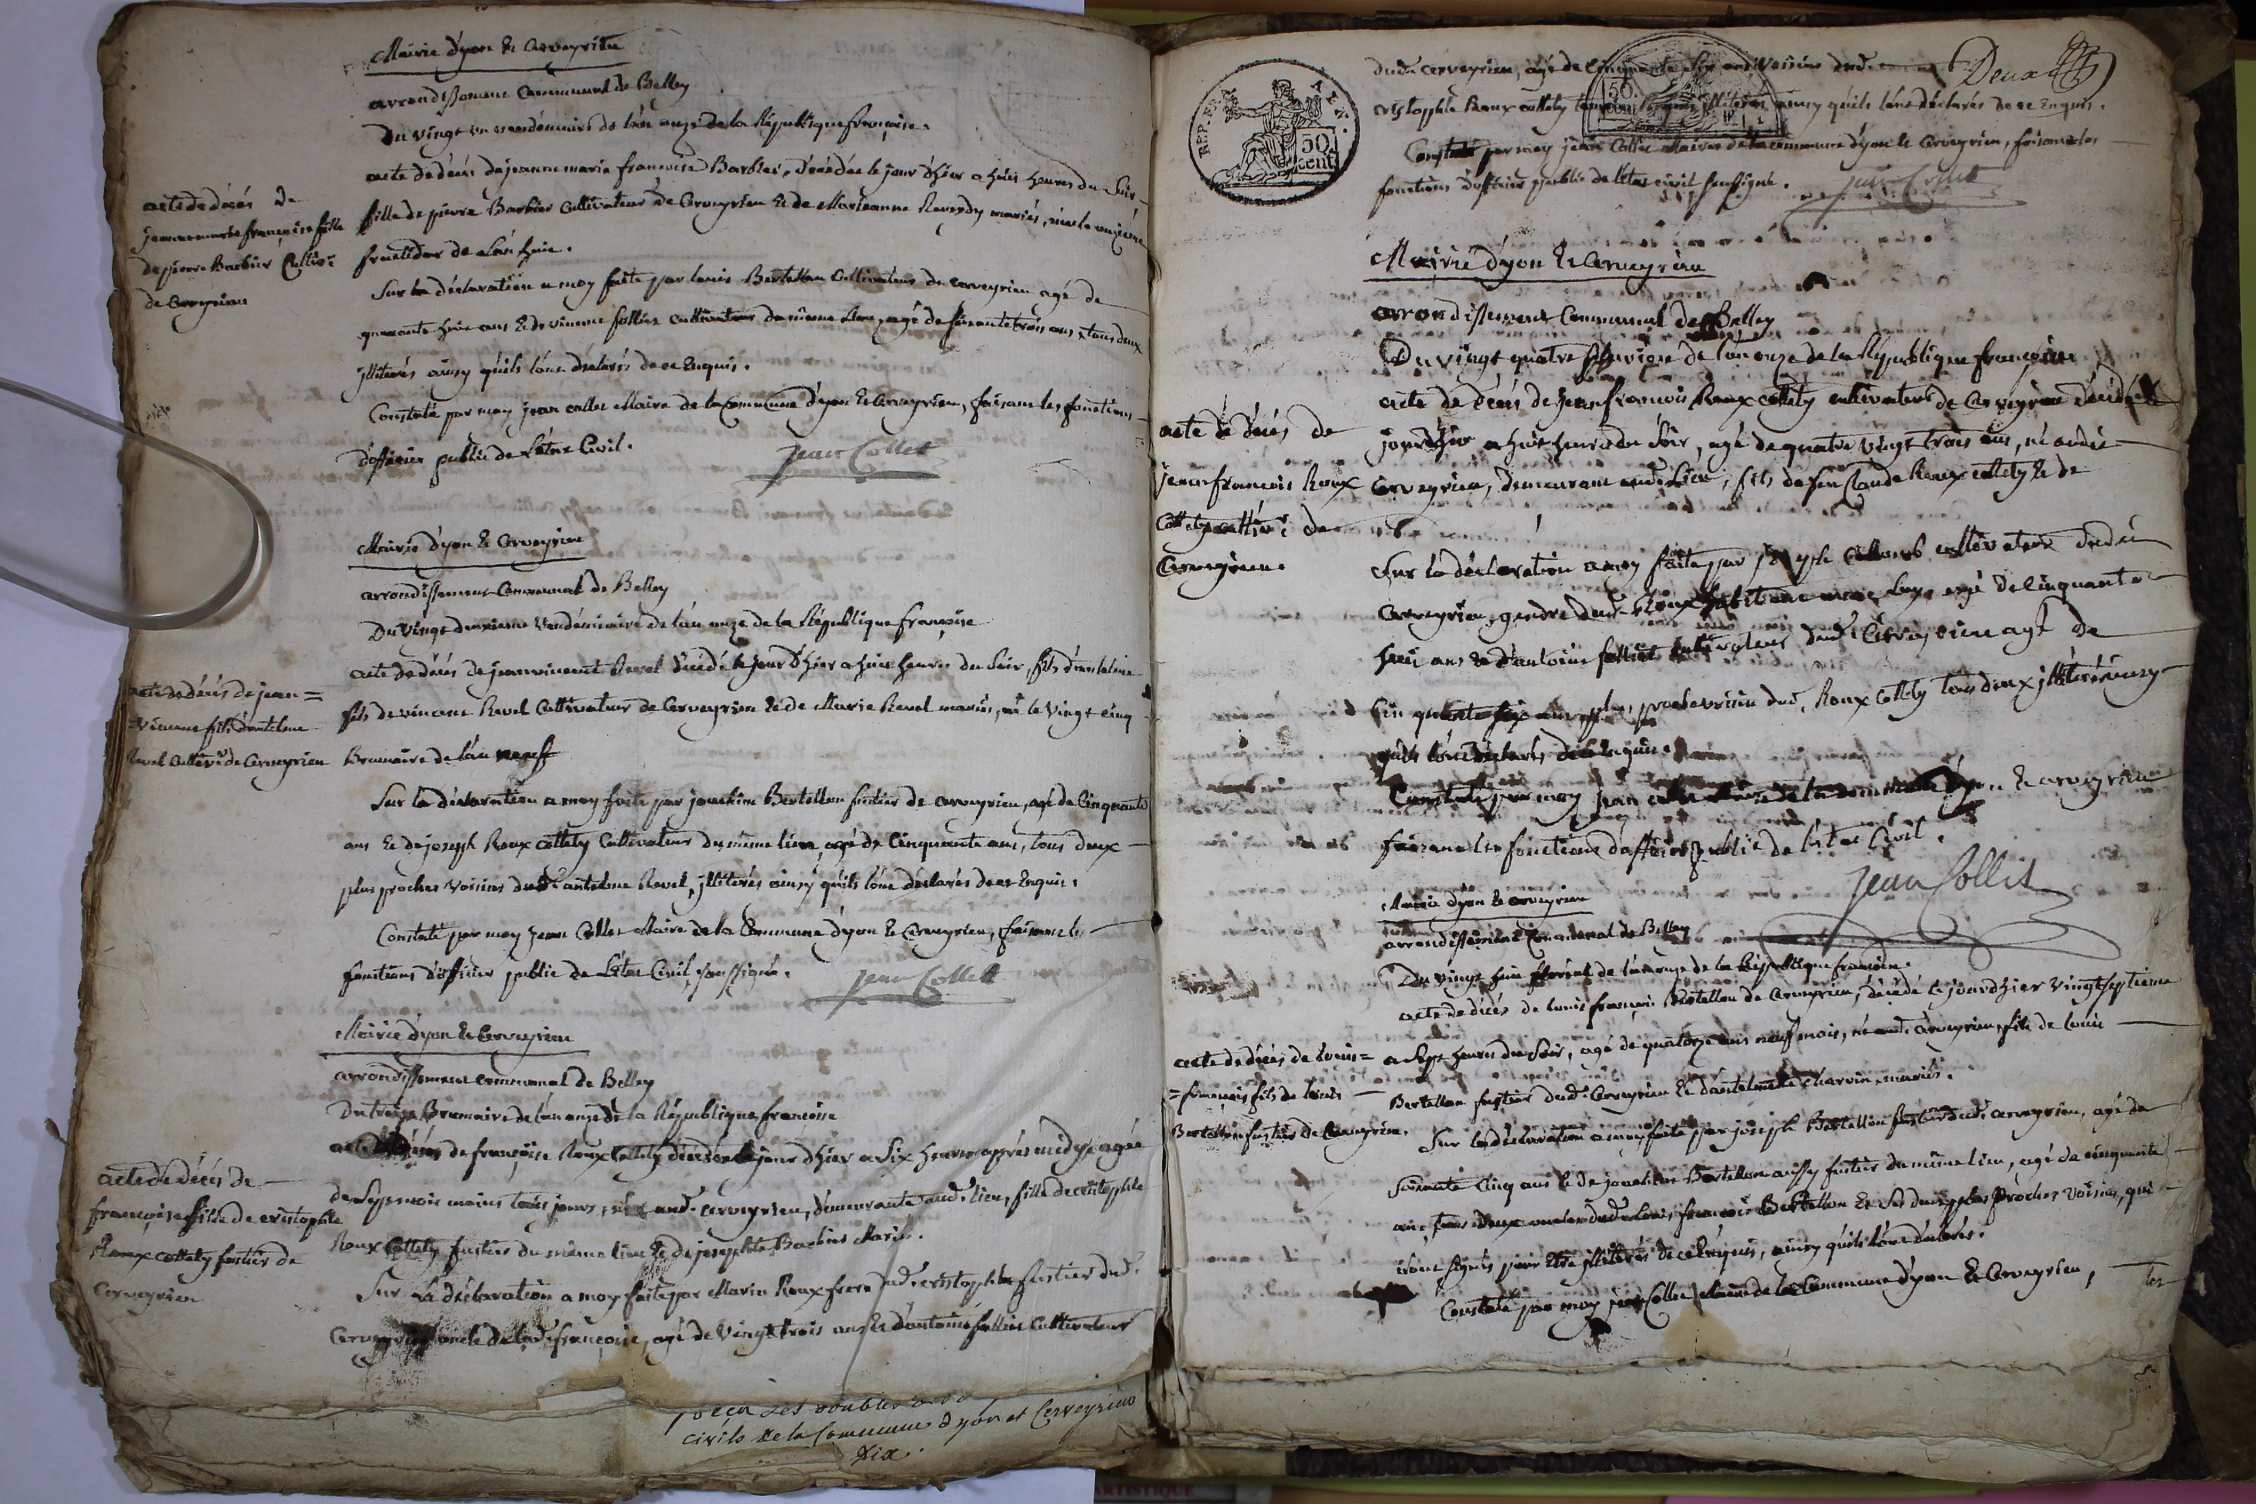 Mairie d'yon & Cerveyrieu
arrondissement Communal de Belley
Du vingt un vendémiaire de l'an onze de la République françoise.
acte de décès de jeanne marie françoise Barbier, décédée le jour d'hier a huit heures du soir
acte de décès de
jeanne marie françoise fille
de pierre Barbier Cultivr
de Cerveyrieu
fille de pierre Barbier Cultivateur de Cerveyrieu & de Marieanne Reverdy mariés, née le onzième
fructidor de l'an huit.
Sur la déclaration a moy faite par louis Bertellon Cultivateur de cerveyrieu agé de
quarante huit ans & de vincent follier cultivateur du même lieu, agé de soixante trois ans, tous deux
jlliterés ainsy qu'ils l'ont déclarés de ce Enquis.
Constaté par moy jean collet Maire de la Commune d'yon & Cerveyrieu, faisant les fonctions
d'officier public de l'état Civil.
jean Collet
Mairie d'yon & Cerveyrieu
arrondissement Communal de Belley
Du vingt deuxieme vendémiaire de l'an onze de la République françoise
acte de décès de jean vincent Revel décédé le jour d'hier a huit heures du soir, fils d'antelme
acte de décès de jean=
vincent fils d'antelme
Revel Cultivr de Cerveyrieu
fils de vincent Revel Cultivateur de Cerveyrieu & de Marie Revel mariés, né le vingt cinq
Brumaire de l'an neuf
Sur la déclaration a moy faite par joachim Bertellon fustier de cerveyrieu, agé de Cinquante
ans & de joseph Roux collety Cultivateur du même lieu, agé de Cinquante ans, tous deux
plus proches voisins dudt antelme Revel, jlliterés ainsy qu'ils l'ont déclarés de ce Enquis.
Constaté par moy jean Collet Maire de la Commune d'yon & Cerveyrieu, faisant les
fonctions d'officier public de l'état Civil, soussigné.
jean Collet
Mairie d'yon & Cerveyrieu
arrondissement communal de Belley
Du treize Brumaire de l'an onze de la République françoise
acte de décès de françoise Roux Collety décédée le jour d'hier a Six heures après midy, agée
acte de décès de
françoise fille de cristophle
Roux collety fustier de
Cerveyrieu
de Sept mois moins trois jours, née audt cerveyrieu, demeurante audt lieu, fille de cristophle
Roux Collety fustier du même lieu & de josephte Barbier Mariés.
Sur la déclaration a moy faite par Marin Roux frere dudt cristophle fustier dudt
Cerveyrieu oncle de ladte françoise, agé de vingt trois ans & d'antoine follier Cultivateur
Les doubles
civils de la Commune d'yon et Cerveyrieu
Dix.
Deux
dudt cerveyrieu, agé de Cinquante Six ans voisin dudt
cristophle Roux collety jlliterés ainsy qu'ils l'ont déclarés de ce Enquis.
Constaté par moy jean Collet Maire de la commune d'yon & Cerveyrieu, faisant les
fonctions d'officier public de l'état civil soussigné.
jean Collet
REP. FRA
50
cent.
Mairie d'yon & Cerveyrieu
arrondissement Communal de Belley
Du vingt quatre pluviose de l'an onze de la République françoise
acte de décès de jean françois Roux collety cultivateur de Cerveyrieu décédé le
acte de décès de
jean françois Roux
Collety cultivr de
Cerveyrieu.
jour d'hier a huit heures du soir, agé de quatre vingt trois ans, né audit
Cerveyrieu, demeurant audt lieu, fils de feu Claude Roux collety & de
Sur la déclaration a moy faite par joseph cultivateur dudit
Cerveyrieu, gendre dudt Roux agé de Cinquante
huit ans & d'antoine follier cultivateur dudt Cerveyrieu agé de
Cinquante six ans, plus proche voisin dudt Roux collety tous deux jlliterés ainsy
qu'ils l'ont déclarés de ce Enquis.
Constaté par moy jean collet Maire de la commune d'yon & cerveyrieu
faisant les fonctions d'officier public de l'état Civil.
jean Collet
Mairie d'yon & cerveyrieu
arrondissement Communal de Belley
Du vingt huit floréal de l'an onze de la République françoise.
acte de décès de louis françois Bertellon de Cerveyrieu, décédé le jour d'hier vingt septieme
acte de décès de louis=
=françois fils de louis
Bertellon fustier de Cerveyrieu.
a Sept heures du Soir, agé de quatorze ans neuf mois, né audt Cerveyrieu, fils de louis
Bertellon fustier dudt Cerveyrieu & d'antelmette charvin mariés.
Sur la déclaration a moy faite par joseph Bertellon fustier dudt cerveyrieu, agé de
soixante Cinq ans & de joachim Bertellon aussy fustier du même lieu, agé de cinquante
ans, tous deux oncles dudt louis françois Bertellon & Ses deux plus proches voisins, qui
n'ont signés pour être jlliterés de ce Enquis, ainsy qu'ils l'ont déclarés.
Constaté par moy jean Collet Maire de la Commune d'yon & Cerveyrieu, les